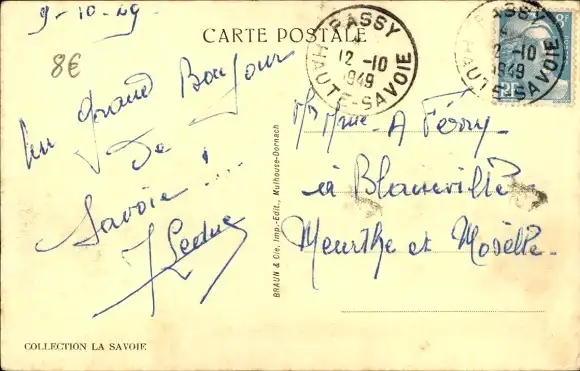 9-10-49
8€
CARTE POSTALE
PASSY
12-10
1949
HAUTE-SAVOIE
PASSY
12-10
1949
HAUTE-SAVOIE
Un grand Bonjour
de
Savoie !..
J Leduc
BRAUN & Cie, Imp.-Edit., Mulhouse-Dornach
Mme A Féry
à Blainville
Meurthe et Moselle.
COLLECTION LA SAVOIE